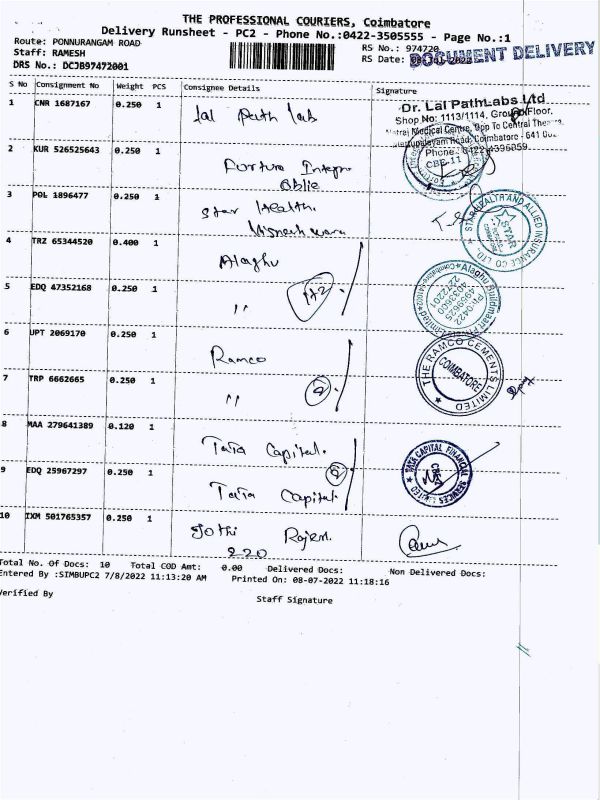 THE PROFESSIONAL COURIERS, Coimbatore
Delivery Runsheet - PC2 - Phone No.:0422-3505555 - Page No.:1
Route: PONNURANGAM ROAD
Staff: RAMESH
DRS No.: DCJB97472001
RS No.: 974720
RS Date: 08-Jul-2022
DOCUMENT DELIVERY
S No Consignment No Weight PCS Consignee Details Signature
1 CNR 1687167 0.250 1 Lal Path lab
Dr. Lal PathLabs Ltd
Shop No: 1113/1114, Ground Floor,
Medical Centre, Opp To Central
Road, Coimbatore - 641
Phone: 0422-4396059
2 KUR 526525643 0.250 1
CBE-11
3 POL 1896477 0.250 1 Star Health.
STAR HEALTH AND ALLIED INSURANCE CO LTD
STAR
4 TRZ 65344520 0.400 1 Alaghu
5 EDQ 47352168 0.250 1 "
Ph:0422
4939625
4033600
2272201
6 UPT 2069170 0.250 1 Ramco
7 TRP 6662665 0.250 1 "
THE RAMCO CEMENTS LIMITED
COIMBATORE
8 MAA 279641389 0.120 1 Tata Capital.
9 EDQ 25967297 0.250 1 Tata Capital.
TATA CAPITAL FINANCIAL SERVICES LIMITED
10 IXM 501765357 0.250 1 Jothi Rajen.
220
Total No. Of Docs: 10 Total COD Amt: 0.00 Delivered Docs: Non Delivered Docs:
Entered By :SIMBUPC2 7/8/2022 11:13:20 AM Printed On: 08-07-2022 11:18:16
Verified By Staff Signature